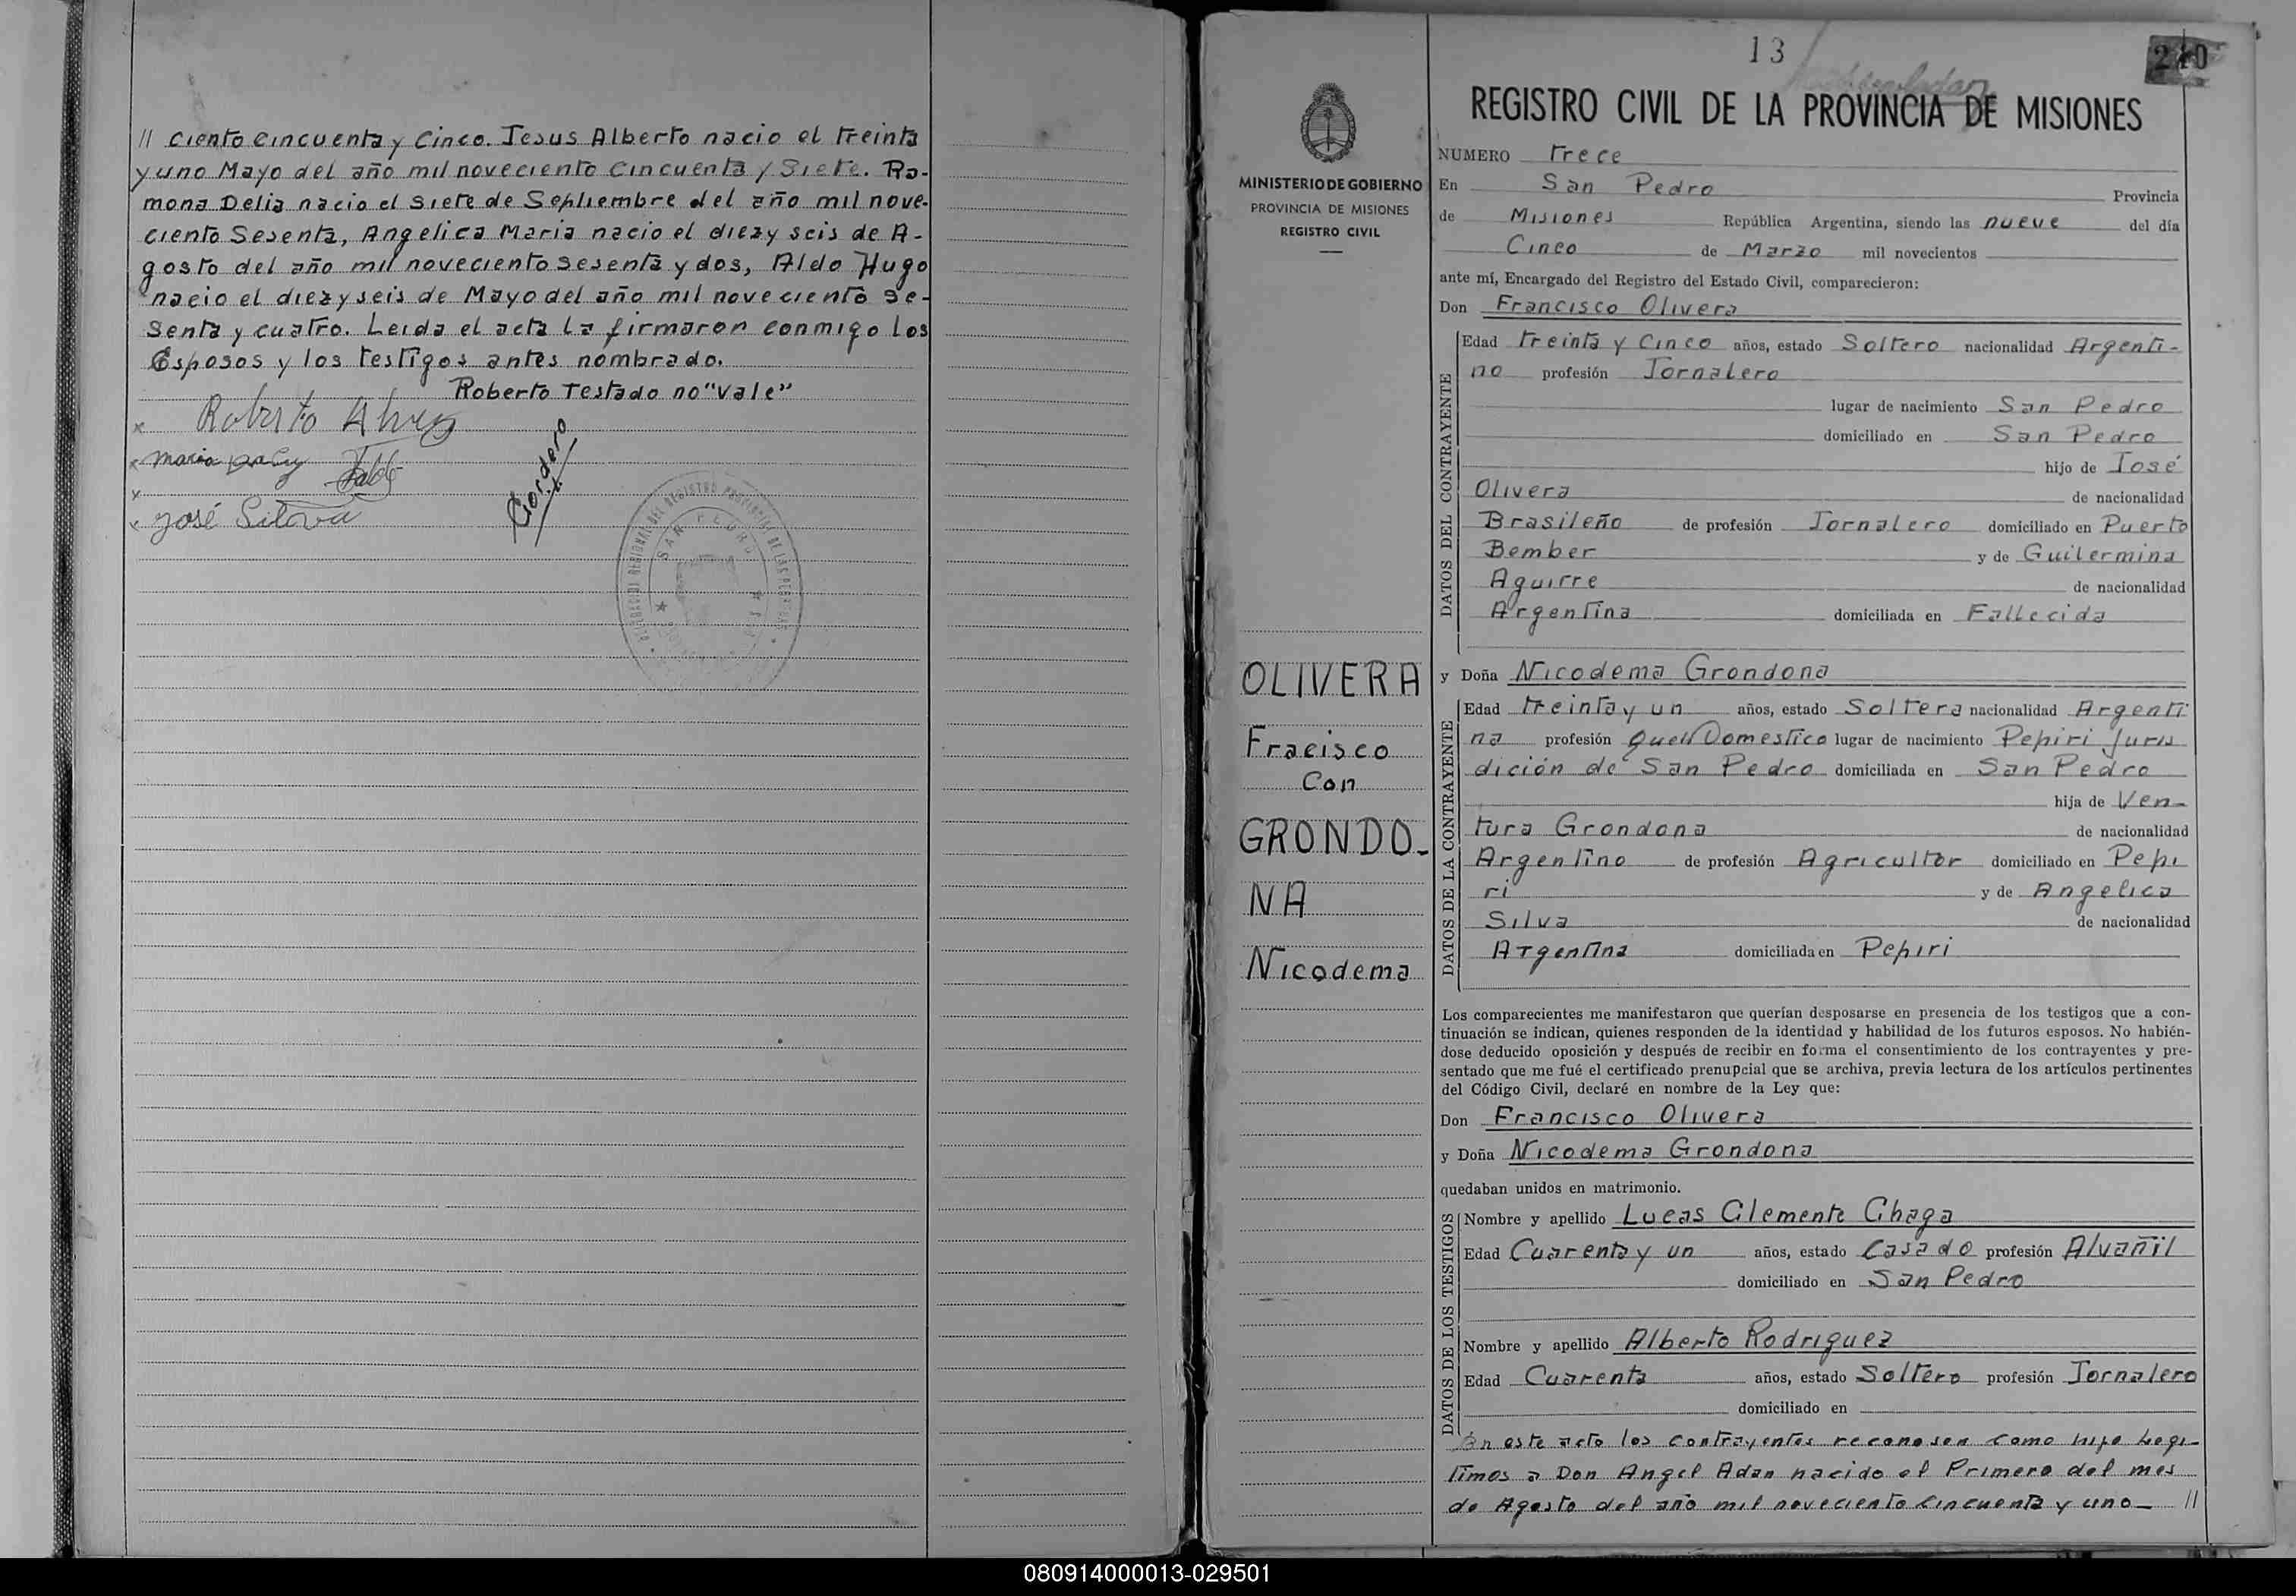 // Ciento Cincuenta y Cinco. Jesus Alberto nacio el treinta
y uno Mayo del año mil noveciento Cincuenta y Siete. Ra-
mona Delia nacio el Siete de Sephiembre del año mil nove-
ciento Sesenta, Angelica Maria nacio el diez y seis de A-
gosto del año mil noveciento sesenta y dos, Aldo Hugo
nacio el diez y seis de Mayo del año mil noveciento se-
senta y cuatro. Leida el acta la firmaron conmigo los
Esposos y los testigos antes nombrado.
Roberto Testado no "Vale"
Roberto
Maria
José Silova
Cordero
SAN PEDRO
13
210
REGISTRO CIVIL DE LA PROVINCIA DE MISIONES
MINISTERIO DE GOBIERNO
PROVINCIA DE MISIONES
REGISTRO CIVIL
OLIVERA
Fracisco
Con
GRONDO-
NA
Nicodema
NUMERO trece
En San Pedro Provincia
de Misiones República Argentina, siendo las nueve del día
Cinco de Marzo mil novecientos
ante mí, Encargado del Registro del Estado Civil, comparecieron:
Don Francisco Olivera
DATOS DEL CONTRAYENTE
Edad treinta y Cinco años, estado Soltero nacionalidad Argenti-
no profesión Jornalero
lugar de nacimiento San Pedro
domiciliado en San Pedro
hijo de José
Olivera de nacionalidad
Brasileño de profesión Jornalero domiciliado en Puerto
Bember y de Guilermina
Aguirre de nacionalidad
Argentina domiciliada en Fallecida
y Doña Nicodema Grondona
DATOS DE LA CONTRAYENTE
Edad treinta y un años, estado Soltera nacionalidad Argenti
na profesión Queh Domestico lugar de nacimiento Pepiri Juris
dición de San Pedro domiciliada en San Pedro
hija de Ven-
tura Grondona de nacionalidad
Argentino de profesión Agricultor domiciliado en Pepi
ri y de Angelica
Silva de nacionalidad
Argentina domiciliada en Pepiri
Los comparecientes me manifestaron que querían desposarse en presencia de los testigos que a con-
tinuación se indican, quienes responden de la identidad y habilidad de los futuros esposos. No habién-
dose deducido oposición y después de recibir en forma el consentimiento de los contrayentes y pre-
sentado que me fué el certificado prenupcial que se archiva, previa lectura de los artículos pertinentes
del Código Civil, declaré en nombre de la Ley que:
Don Francisco Olivera
y Doña Nicodema Grondona
quedaban unidos en matrimonio.
DATOS DE LOS TESTIGOS
Nombre y apellido Lucas Clemente Chaga
Edad Cuarenta y un años, estado Casado profesión Alvañil
domiciliado en San Pedro
Nombre y apellido Alberto Rodriguez
Edad Cuarenta años, estado Soltero profesión Jornalero
domiciliado en
En este acto los contrayentes reconosen como hijo Legi-
timos a Don Angel Adan nacido el Primero del mes
de Agosto del año mil noveciento Cincuenta y uno- //
080914000013-029501